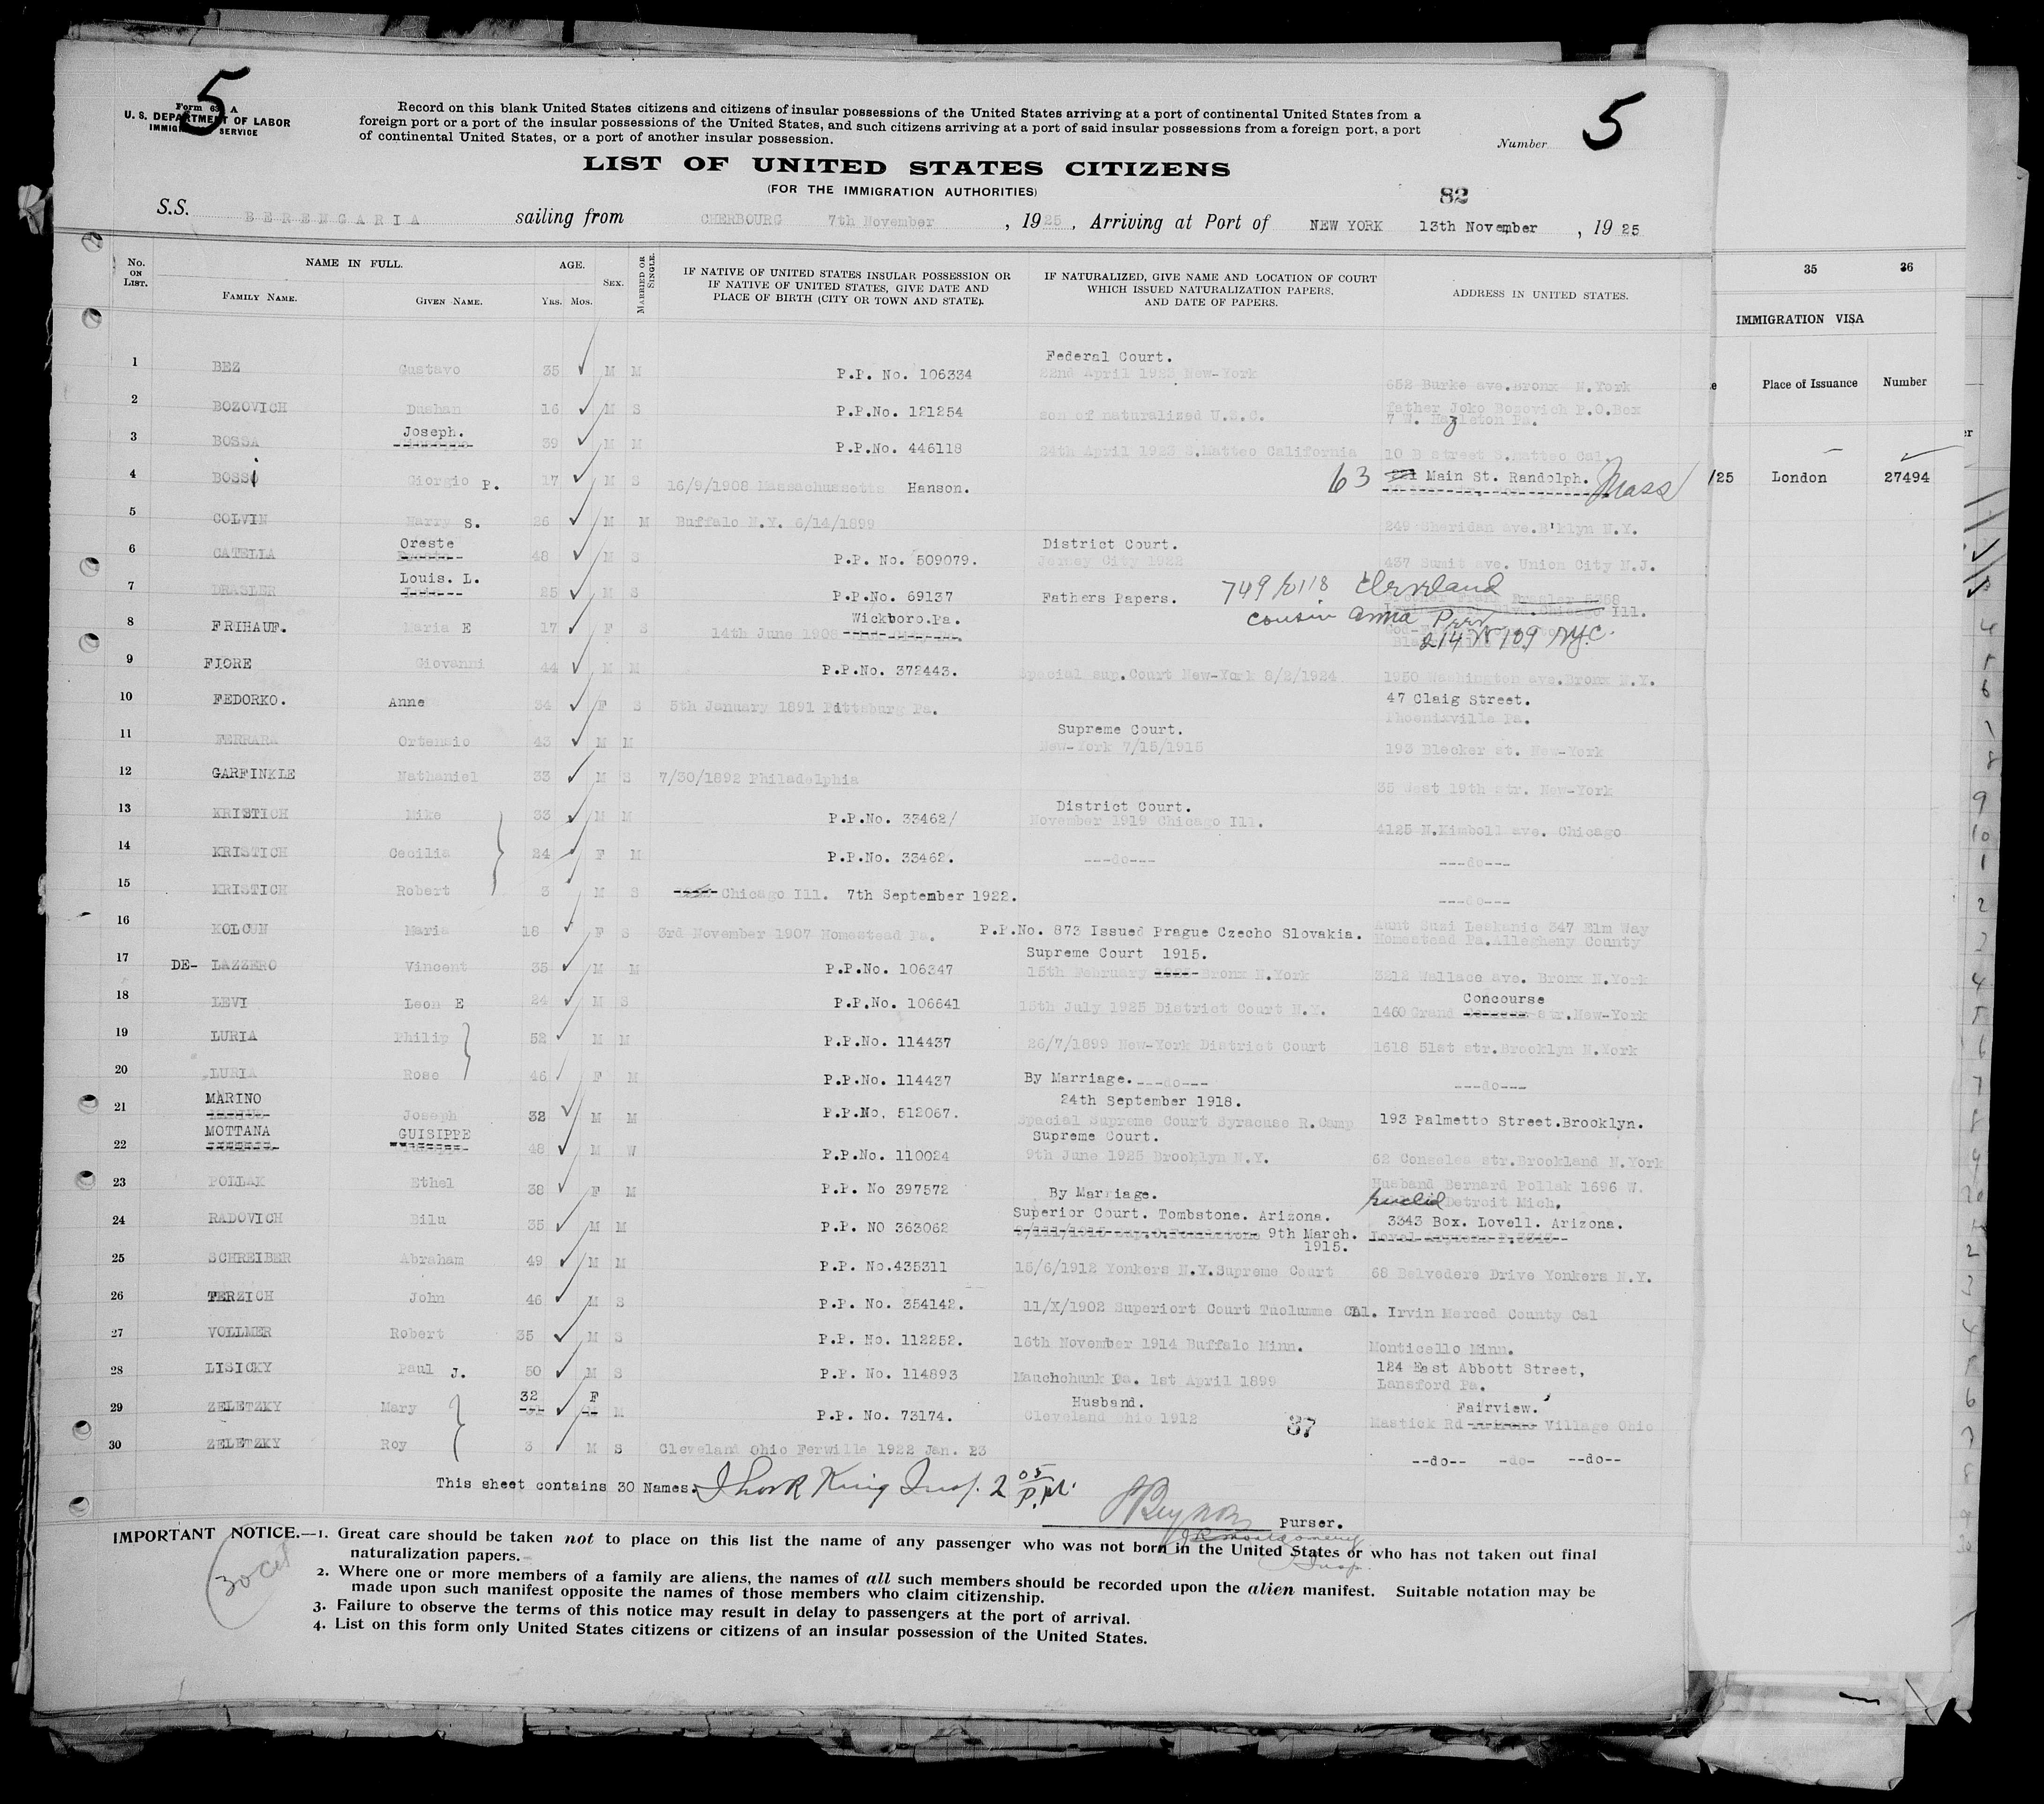 5
5
Form 63 A
U. S. DEPARTMENT OF LABOR
IMMIGRATION SERVICE
Record on this blank United States citizens and citizens of insular possessions of the United States arriving at a port of continental United States from a
foreign port or a port of the insular possessions of the United States, and such citizens arriving at a port of said insular possessions from a foreign port, a port
of continental United States, or a port of another insular possession.
Number
LIST OF UNITED STATES CITIZENS
(FOR THE IMMIGRATION AUTHORITIES)
82
S.S. BERENGARIA sailing from CHERBOURG 7th November, 1925, Arriving at Port of NEW YORK 13th November, 1925
No. ON LIST. NAME IN FULL. FAMILY NAME. GIVEN NAME. AGE. YRS. MOS. SEX. MARRIED OR SINGLE. IF NATIVE OF UNITED STATES INSULAR POSSESSION OR IF NATIVE OF UNITED STATES, GIVE DATE AND PLACE OF BIRTH (CITY OR TOWN AND STATE). IF NATURALIZED, GIVE NAME AND LOCATION OF COURT WHICH ISSUED NATURALIZATION PAPERS, AND DATE OF PAPERS. ADDRESS IN UNITED STATES.
35 36
IMMIGRATION VISA
Place of Issuance Number
/25 London 27494
1 BEZ Gustavo 35 M M P.P. No. 106334 Federal Court. 22nd April 1923 New-York 652 Burke ave.Bronx N.York
2 BOZOVICH Dushan 16 M S P.P.No. 121254 son of naturalized U.S.C. father Joko Bozovich P.O.Box 7 W. Hazleton Pa.
3 BOSSA Joseph. 39 M M P.P.No. 446118 24th April 1923 S.Matteo California 10 B street S.Matteo Cal.
4 BOSSI Giorgio P. 17 M S 16/9/1908 Massachussetts Hanson. 63 Main St. Randolph. Mass
5 COLVIN Harry S. 26 M M Buffalo N.Y. 6/14/1899 249 Sheridan ave.B'klyn N.Y.
6 CATELLA Oreste 48 M S P.P. No. 509079. District Court. Jersey City 1922 437 Sumit ave. Union City N.J.
7 DRASLER Louis. L. 25 M S P.P.No. 69137 Fathers Papers. 749 Cleveland Ill.
8 FRIHAUF. Maria E 17 F S 14th June 1908 Wickboro.Pa. cousin Anna 214 W 109 N.Y.C.
9 FIORE Giovanni 44 M M P.P.No. 372443. Special sup.Court New-York 8/2/1924 1950 Washington ave.Bronx N.Y.
10 FEDORKO. Anne 34 F S 5th January 1891 Pittsburg Pa. 47 Claig Street. Phoenixville Pa.
11 FERRARA Ortensio 43 M M Supreme Court. New-York 7/15/1915 193 Blecker st. New-York
12 GARFINKLE Nathaniel 33 M S 7/30/1892 Philadelphia 35 West 19th str. New-York
13 KRISTICH Mike 33 M M P.P.No. 33462/ District Court. November 1919 Chicago Ill. 4125 N.Kimboll ave. Chicago
14 KRISTICH Cecilia 24 F M P.P.No. 33462. ---do--- ---do---
15 KRISTICH Robert 3 M S Chicago Ill. 7th September 1922. ---do---
16 KOLCUN Maria 18 F S 3rd November 1907 Homestead Pa. P.P.No. 873 Issued Prague Czecho Slovakia. Aunt Suzi Leskanic 347 Elm Way Homestead Pa.Allegheny County
17 DE- LAZZERO Vincent 35 M M P.P.No. 106347 Supreme Court 1915. 15th February Bronx N.York 3212 Wallace ave. Bronx N.York
18 LEVI Leon E 24 M S P.P.No. 106641 15th July 1925 District Court N.Y. 1460 Grand Concourse str.New-York
19 LURIA Philip 52 M M P.P.No. 114437 26/7/1899 New-York District Court 1618 51st str.Brooklyn N.York
20 LURIA Rose 46 F M P.P.No. 114437 By Marriage.---do--- ---do---
21 MARINO Joseph 32 M M P.P.No. 512067. 24th September 1918. Special Supreme Court Syracuse R.Camp 193 Palmetto Street.Brooklyn.
22 MOTTANA GUISIPPE 48 M W P.P.No. 110024 Supreme Court. 9th June 1925 Brooklyn N.Y. 62 Conselea str.Brookland N.York
23 POLLAK Ethel 38 F M P.P. No 397572 By Marriage. Husband Bernard Pollak 1696 W. Euclid Detroit Mich.
24 RADOVICH Bilu 35 M M P.P. NO 363062 Superior Court. Tombstone. Arizona. 9th March. 1915. 3343 Box. Lovell. Arizona.
25 SCHREIBER Abraham 49 M M P.P. No.435311 15/6/1912 Yonkers N.Y.Supreme Court 68 Belvedere Drive Yonkers N.Y.
26 TERZICH John 46 M S P.P. No. 354142. 11/X/1902 Superiort Court Tuolumme Cal. Irvin Merced County Cal
27 VOLLMER Robert 35 M S P.P. No. 112252. 16th November 1914 Buffalo Minn. Monticello Minn.
28 LISICKY Paul J. 50 M S P.P. No. 114893 Mauchchunk Pa. 1st April 1899 124 East Abbott Street, Lansford Pa.
29 ZELETZKY Mary 32 F M P.P. No. 73174. Husband. Cleveland Ohio 1912 37 Mastick Rd Fairview. Village Ohio
30 ZELETZKY Roy 3 M S Cleveland Ohio Ferwille 1922 Jan. 23 --do-- -do- --do--
This sheet contains 30 Names. King Insp. 2 05 P.M.
Purser.
Insp.
30 cit
IMPORTANT NOTICE.—1. Great care should be taken not to place on this list the name of any passenger who was not born in the United States or who has not taken out final
naturalization papers.
2. Where one or more members of a family are aliens, the names of all such members should be recorded upon the alien manifest. Suitable notation may be
made upon such manifest opposite the names of those members who claim citizenship.
3. Failure to observe the terms of this notice may result in delay to passengers at the port of arrival.
4. List on this form only United States citizens or citizens of an insular possession of the United States.